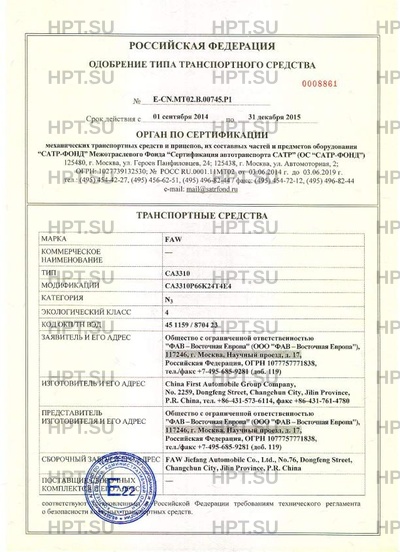 РОССИЙСКАЯ ФЕДЕРАЦИЯ
ОДОБРЕНИЕ ТИПА ТРАНСПОРТНОГО СРЕДСТВА
0008861
№ E-CN.MT02.B.00745.P1
Срок действия с 01 сентября 2014 по 31 декабря 2015
ОРГАН ПО СЕРТИФИКАЦИИ
механических транспортных средств и прицепов, их составных частей и предметов оборудования
"САТР-ФОНД" Межотраслевого Фонда "Сертификация автотранспорта САТР" (ОС "САТР-ФОНД")
125480, г. Москва, ул. Героев Панфиловцев, 24; 125438, г. Москва, ул. Автомоторная, 2;
ОГРН: 1027739132530; № РОСС RU.0001.11МТ02. от 03.06.2014 г. до 03.06.2019 г.
тел.: (495) 454-42-27, (495) 456-62-51, (495) 496-82-44 / факс: (495) 454-72-12, (495) 496-82-44
e-mail: mail@satrfond.ru
ТРАНСПОРТНЫЕ СРЕДСТВА
МАРКА FAW
КОММЕРЧЕСКОЕ —
НАИМЕНОВАНИЕ
ТИП CA3310
МОДИФИКАЦИИ CA3310P66K24T4E4
КАТЕГОРИЯ N3
ЭКОЛОГИЧЕСКИЙ КЛАСС 4
КОД ОКП/ТН ВЭД 45 1159 / 8704 23
ЗАЯВИТЕЛЬ И ЕГО АДРЕС Общество с ограниченной ответственностью
"ФАВ – Восточная Европа" (ООО "ФАВ – Восточная Европа"),
117246, г. Москва, Научный проезд, д. 17,
Российская Федерация, ОГРН 1077757771838,
тел./факс +7-495-685-9281 (доб. 119)
ИЗГОТОВИТЕЛЬ И ЕГО АДРЕС China First Automobile Group Company,
No. 2259, Dongfeng Street, Changchun City, Jilin Province,
P.R. China, тел. +86-431-573-6114, факс +86-431-761-4780
ПРЕДСТАВИТЕЛЬ Общество с ограниченной ответственностью
ИЗГОТОВИТЕЛЯ И ЕГО АДРЕС "ФАВ – Восточная Европа" (ООО "ФАВ – Восточная Европа"),
117246, г. Москва, Научный проезд, д. 17,
Российская Федерация, ОГРН 1077757771838,
тел./факс +7-495-685-9281 (доб. 119)
СБОРОЧНЫЙ ЗАВОД И ЕГО АДРЕС FAW Jiefang Automobile Co., Ltd., No.76, Dongfeng Street,
Changchun City, Jilin Province, P.R. China
ПОСТАВЩИК СБОРОЧНЫХ —
КОМПЛЕКТОВ И ЕГО АДРЕС
E22
соответствуют установленным в Российской Федерации требованиям технического регламента
о безопасности колесных транспортных средств.
HPT.SU